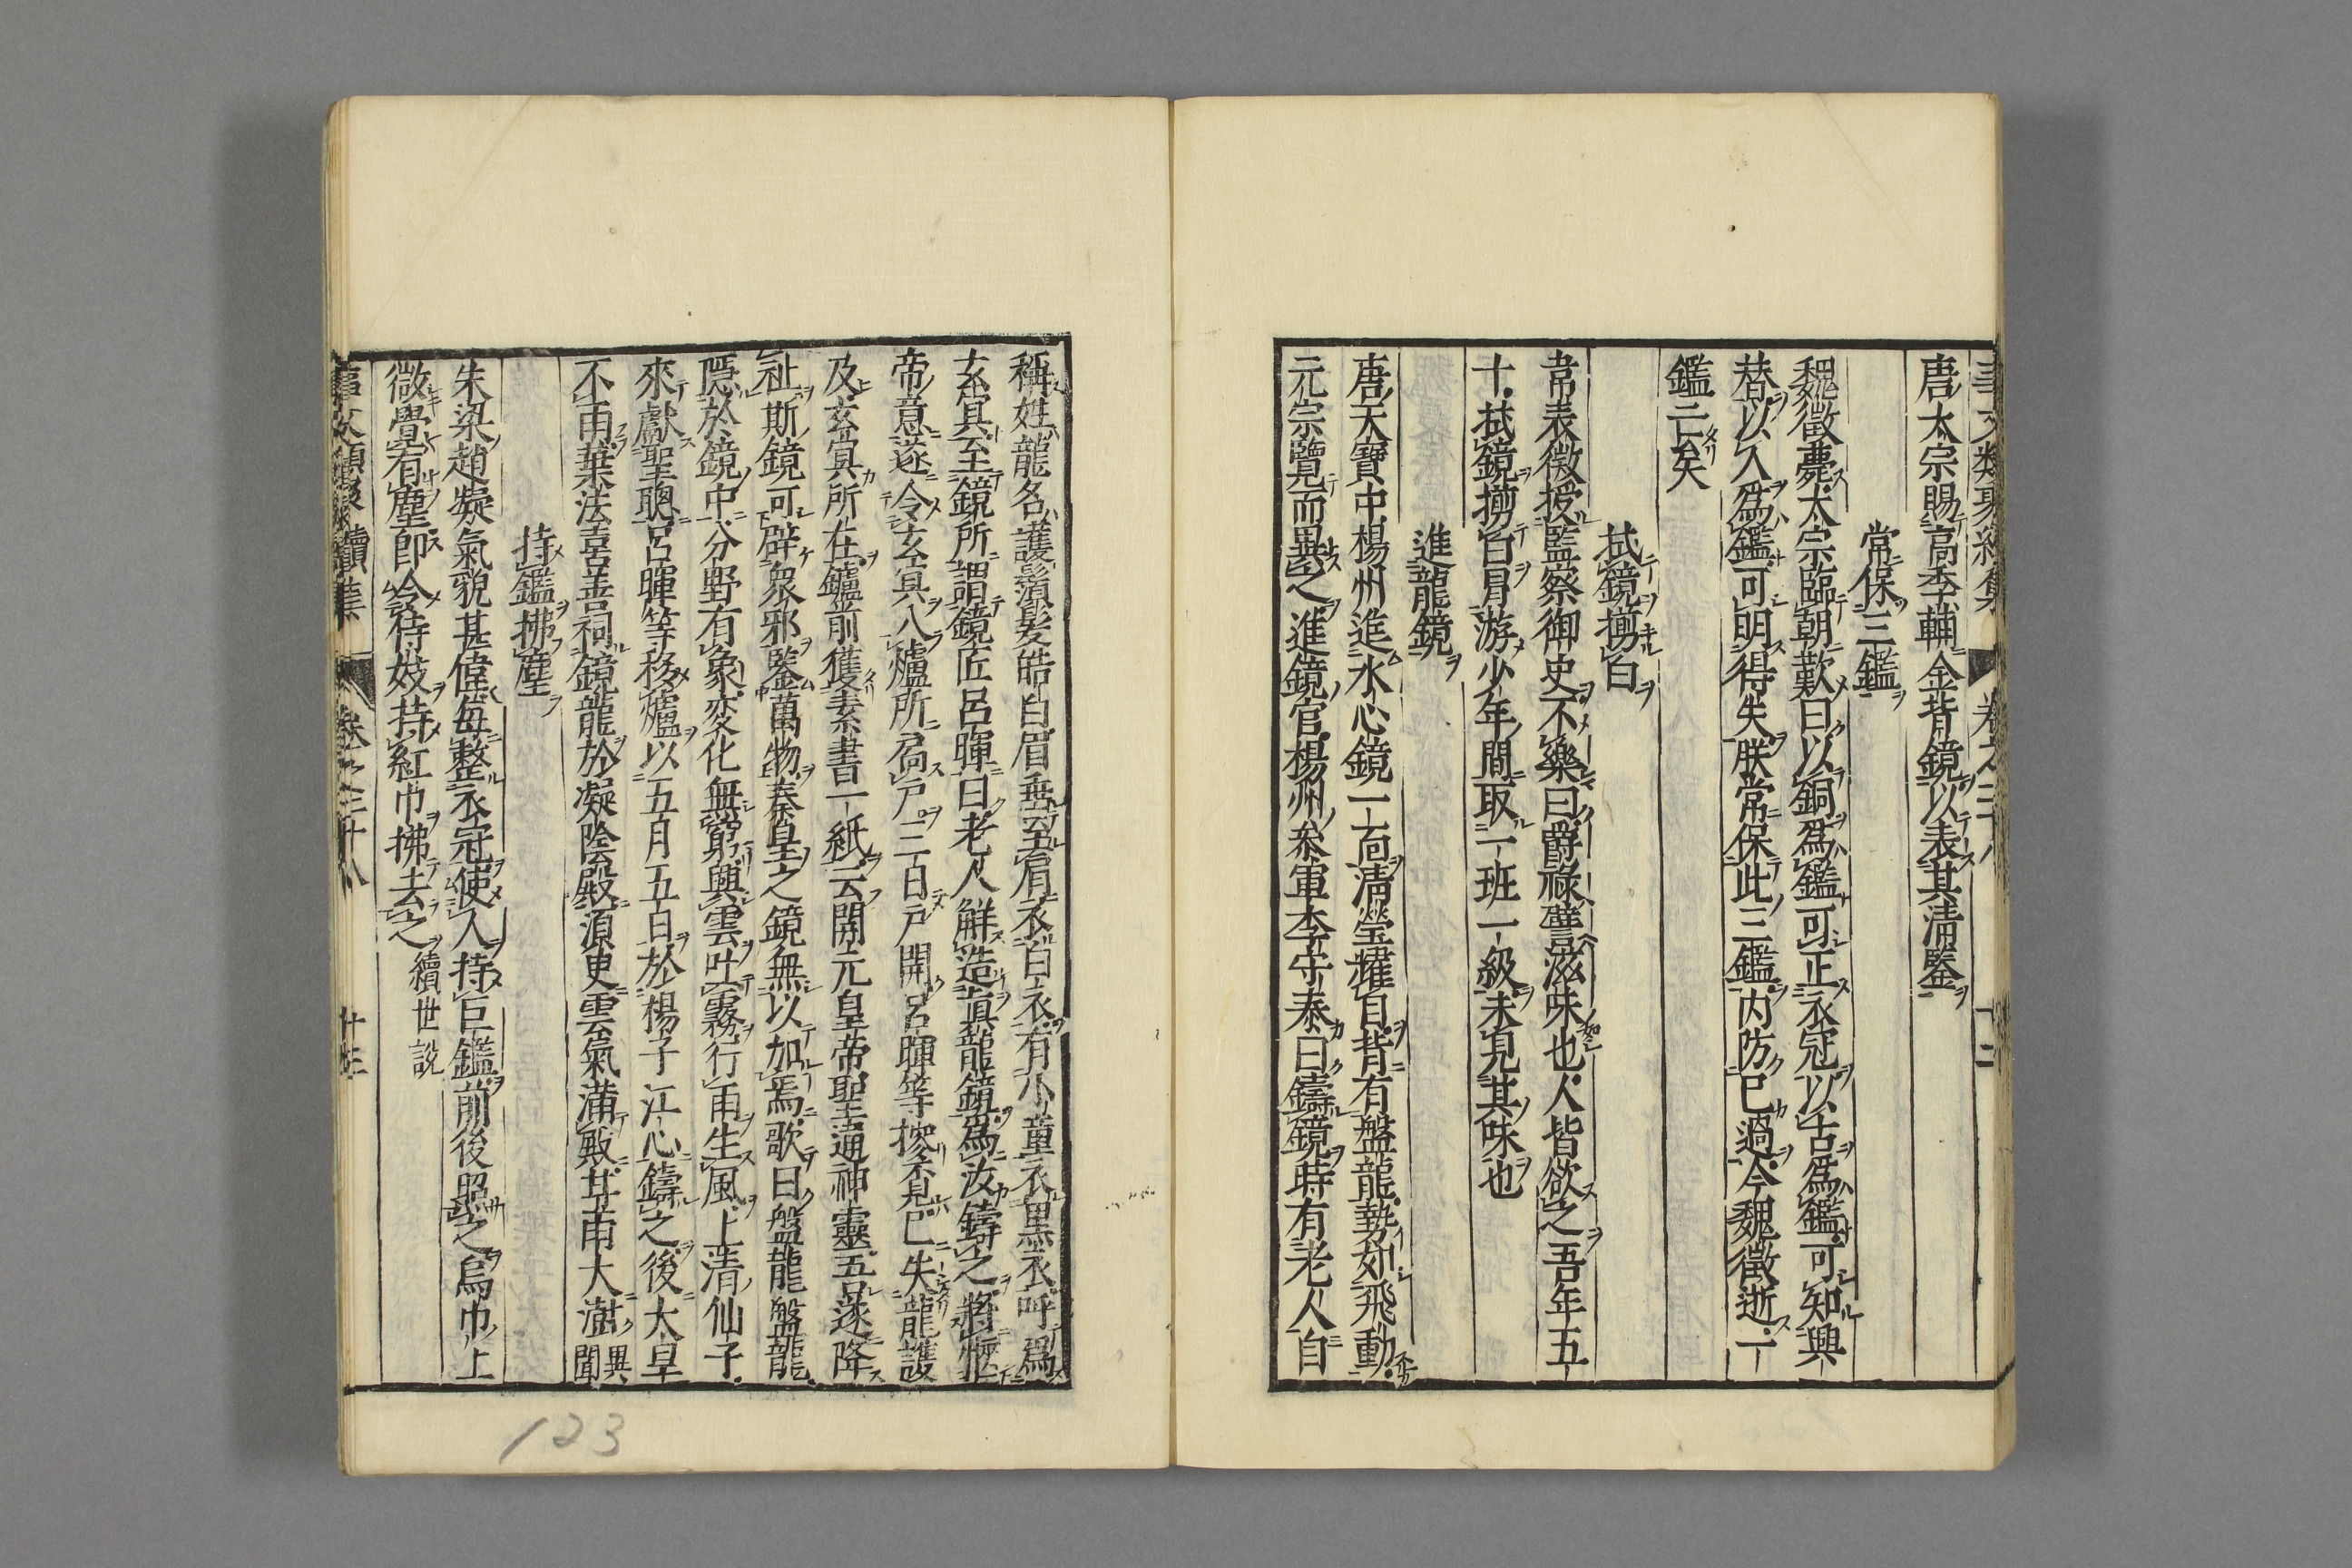 事文類聚續集 卷之二十八 十二
唐太宗賜高季輔金背鏡以表其清鑒
常保三鑑
魏徵薨太宗臨朝歎曰以銅爲鑑可正衣冠以古爲鑑可知興
替以人爲鑑可明得失朕常保此三鑑内防己過今魏徵逝一
鑑亡矣
拭鏡搠白
韋表微授監察御史不樂曰爵祿譬滋味也人皆欲之吾年五
十拭鏡搠白冒游少年間取一班一級未見其味也
進龍鏡
唐天寶中楊州進水心鏡一面清瑩耀日背有盤龍勢如飛動
元宗覽而異之進鏡官楊州參軍李守泰曰鑄鏡時有老人自
稱姓龍名護鬚髮皓白眉垂至肩衣白衣有小童衣黒衣呼爲
玄冥至鏡所謂鏡匠呂暉曰老人解造眞龍鏡爲汝鑄之將愜
帝意遂令玄冥入爐所扃戸三日戸開呂暉等搜不見已失龍護
及玄冥所在鑪前獲素書一紙云開元皇帝聖通神靈吾遂降
祉斯鏡可辟衆邪鑒萬物秦皇之鏡無以加焉歌曰盤龍盤龍
隠於鏡中分野有象変化無窮興雲吐霧行雨生風上清仙子
來獻聖聰呂暉等移爐以五月五日於楊子江心鑄之後大旱
不雨葉法善祠鏡龍於凝陰殿須臾雲氣滿殿甘雨大澍異聞
持鑑拂塵
朱梁趙凝氣貌甚偉毎整衣冠使人持巨鑑前後照之烏巾上
微覺有塵即令侍妓持紅巾拂去之續世説
事文類聚續集 卷之二十八
123